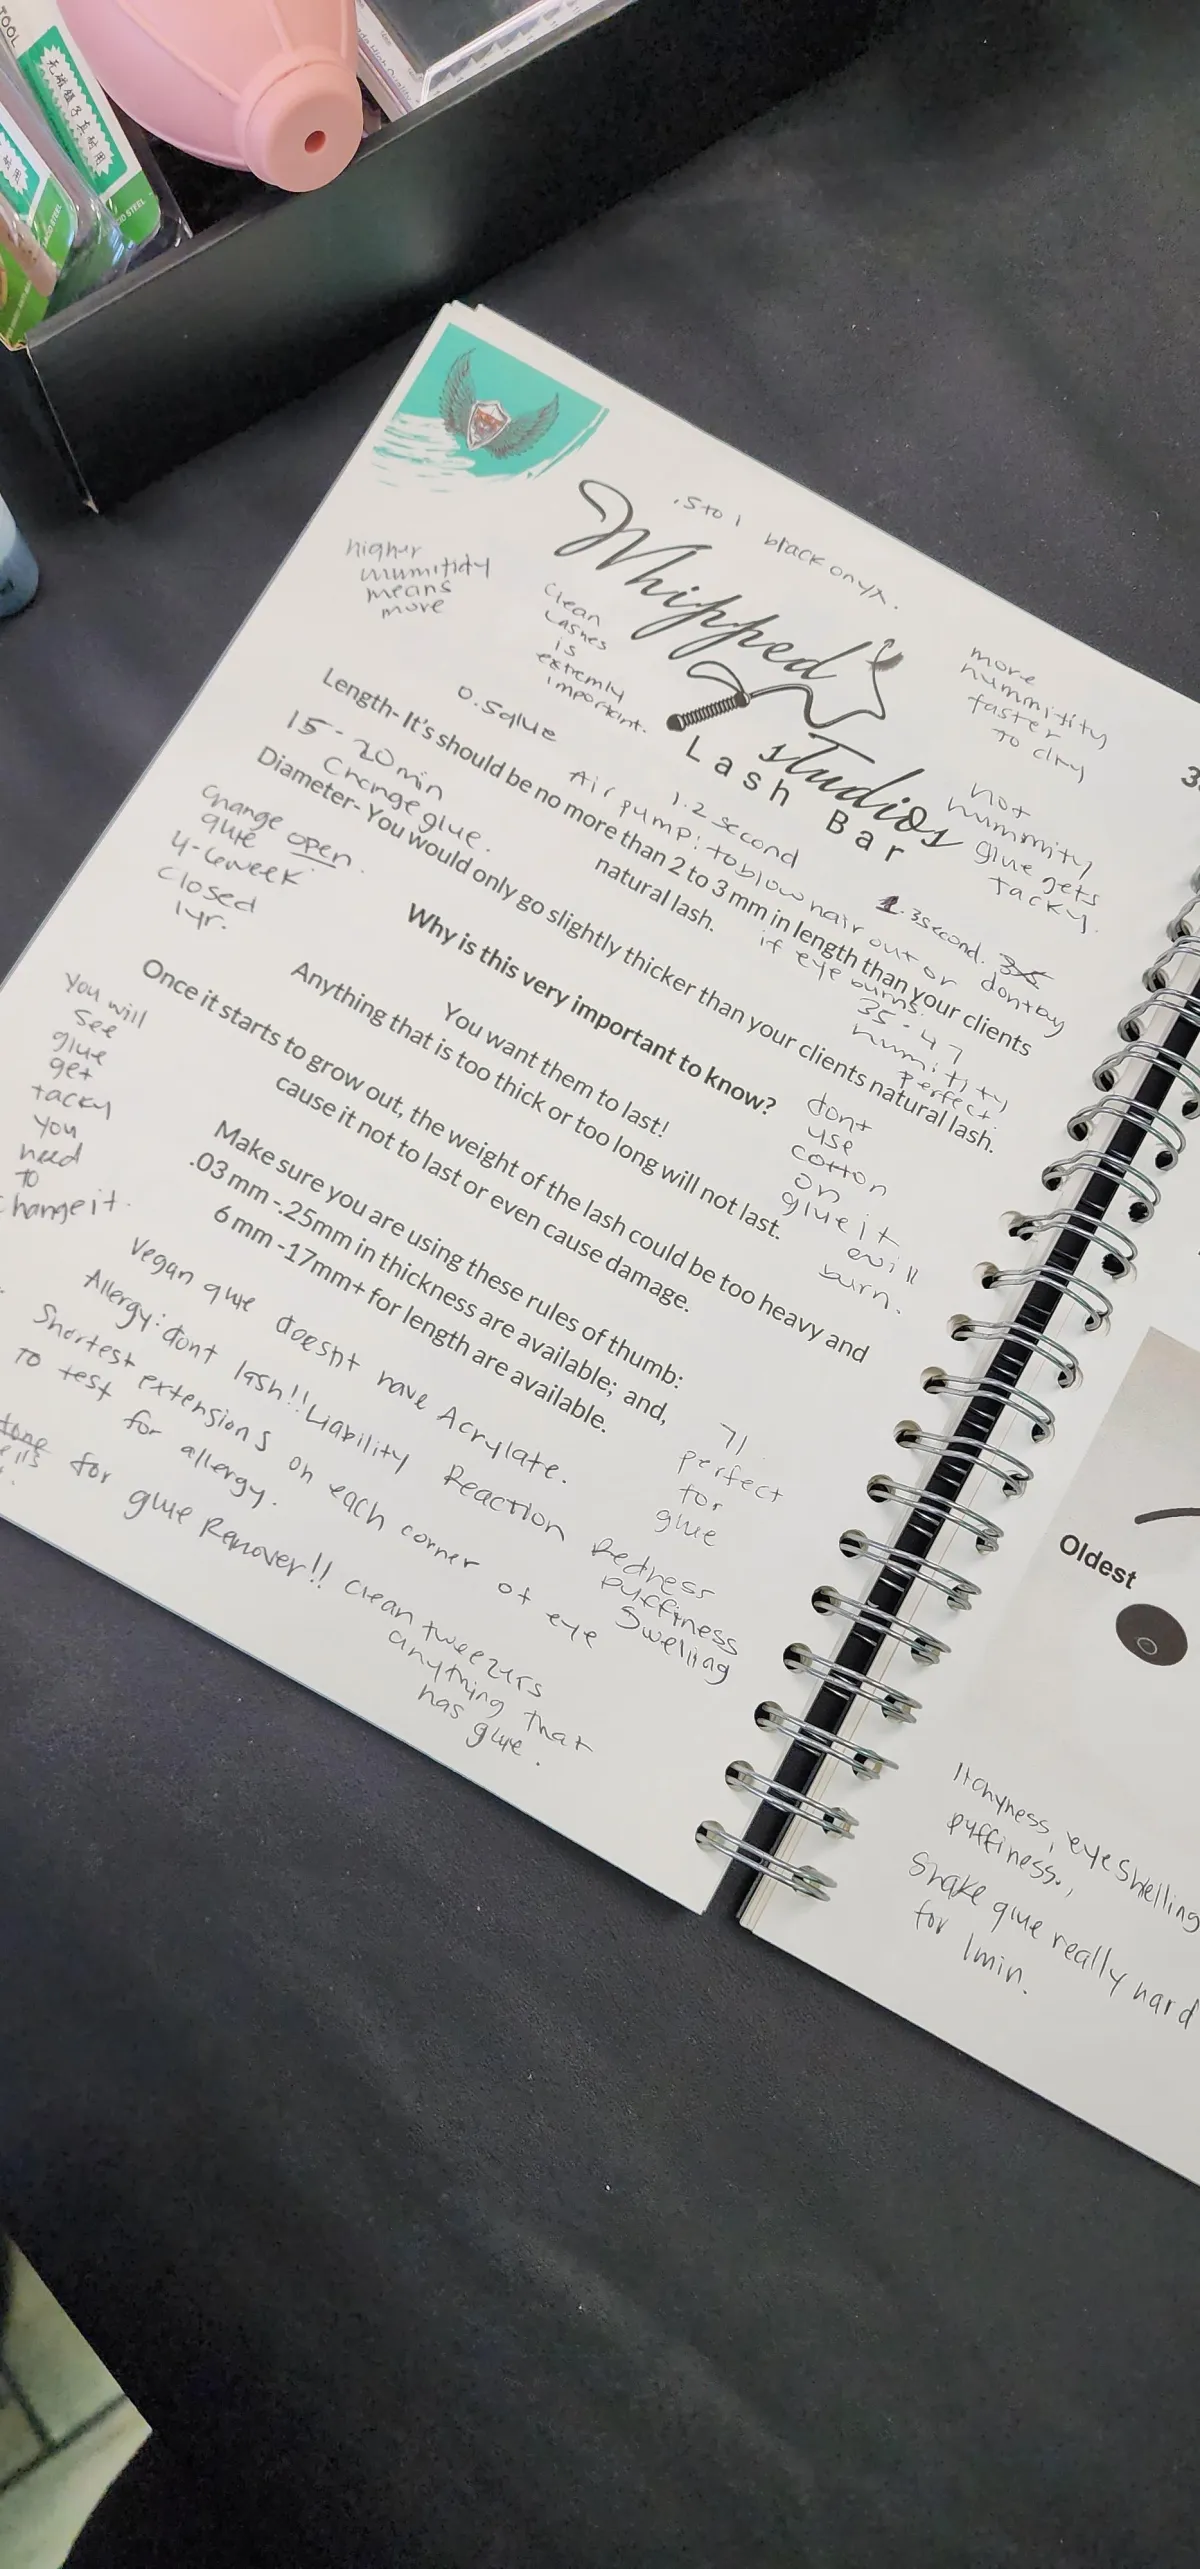 TOOL
无磁镊子真耐用
.5 to 1 black onyx.
Whipped
studios
Lash Bar
higher
means
more
Clean
Lashes
is
extremly
important.
more
hummitity
faster
to dry
0.5 glue
1.2 second
not
hummity
glue gets
tacky.
15-20 min
Change glue.
Air pump: to blow hair out or
if eye burns.
.3 second.
Length- It's should be no more than 2 to 3 mm in length than your clients
natural lash.
Diameter- You would only go slightly thicker than your clients natural lash.
Change open
glue
4-6 week
closed
1yr.
35-47
humitity
perfect.
Why is this very important to know?
You want them to last!
Anything that is too thick or too long will not last.
Once it starts to grow out, the weight of the lash could be too heavy and
cause it not to last or even cause damage.
dont
use
cotton
on
glue it
will
burn.
You will
see
glue
get
tacky
you
need
to
change it.
Make sure you are using these rules of thumb:
.03 mm -.25mm in thickness are available; and,
6 mm -17mm+ for length are available.
71
perfect
for
glue
Vegan glue doesnt have Acrylate.
Allergy: dont lash!! Liability Reaction Redness
puffiness
Swelling
Shortest extensions on each corner of eye
to test for allergy.
for glue Remover!! clean tweezers
anything that
has glue.
Oldest
Itchyness, eye Swelling
puffiness.,
Shake glue really hard
for 1min.